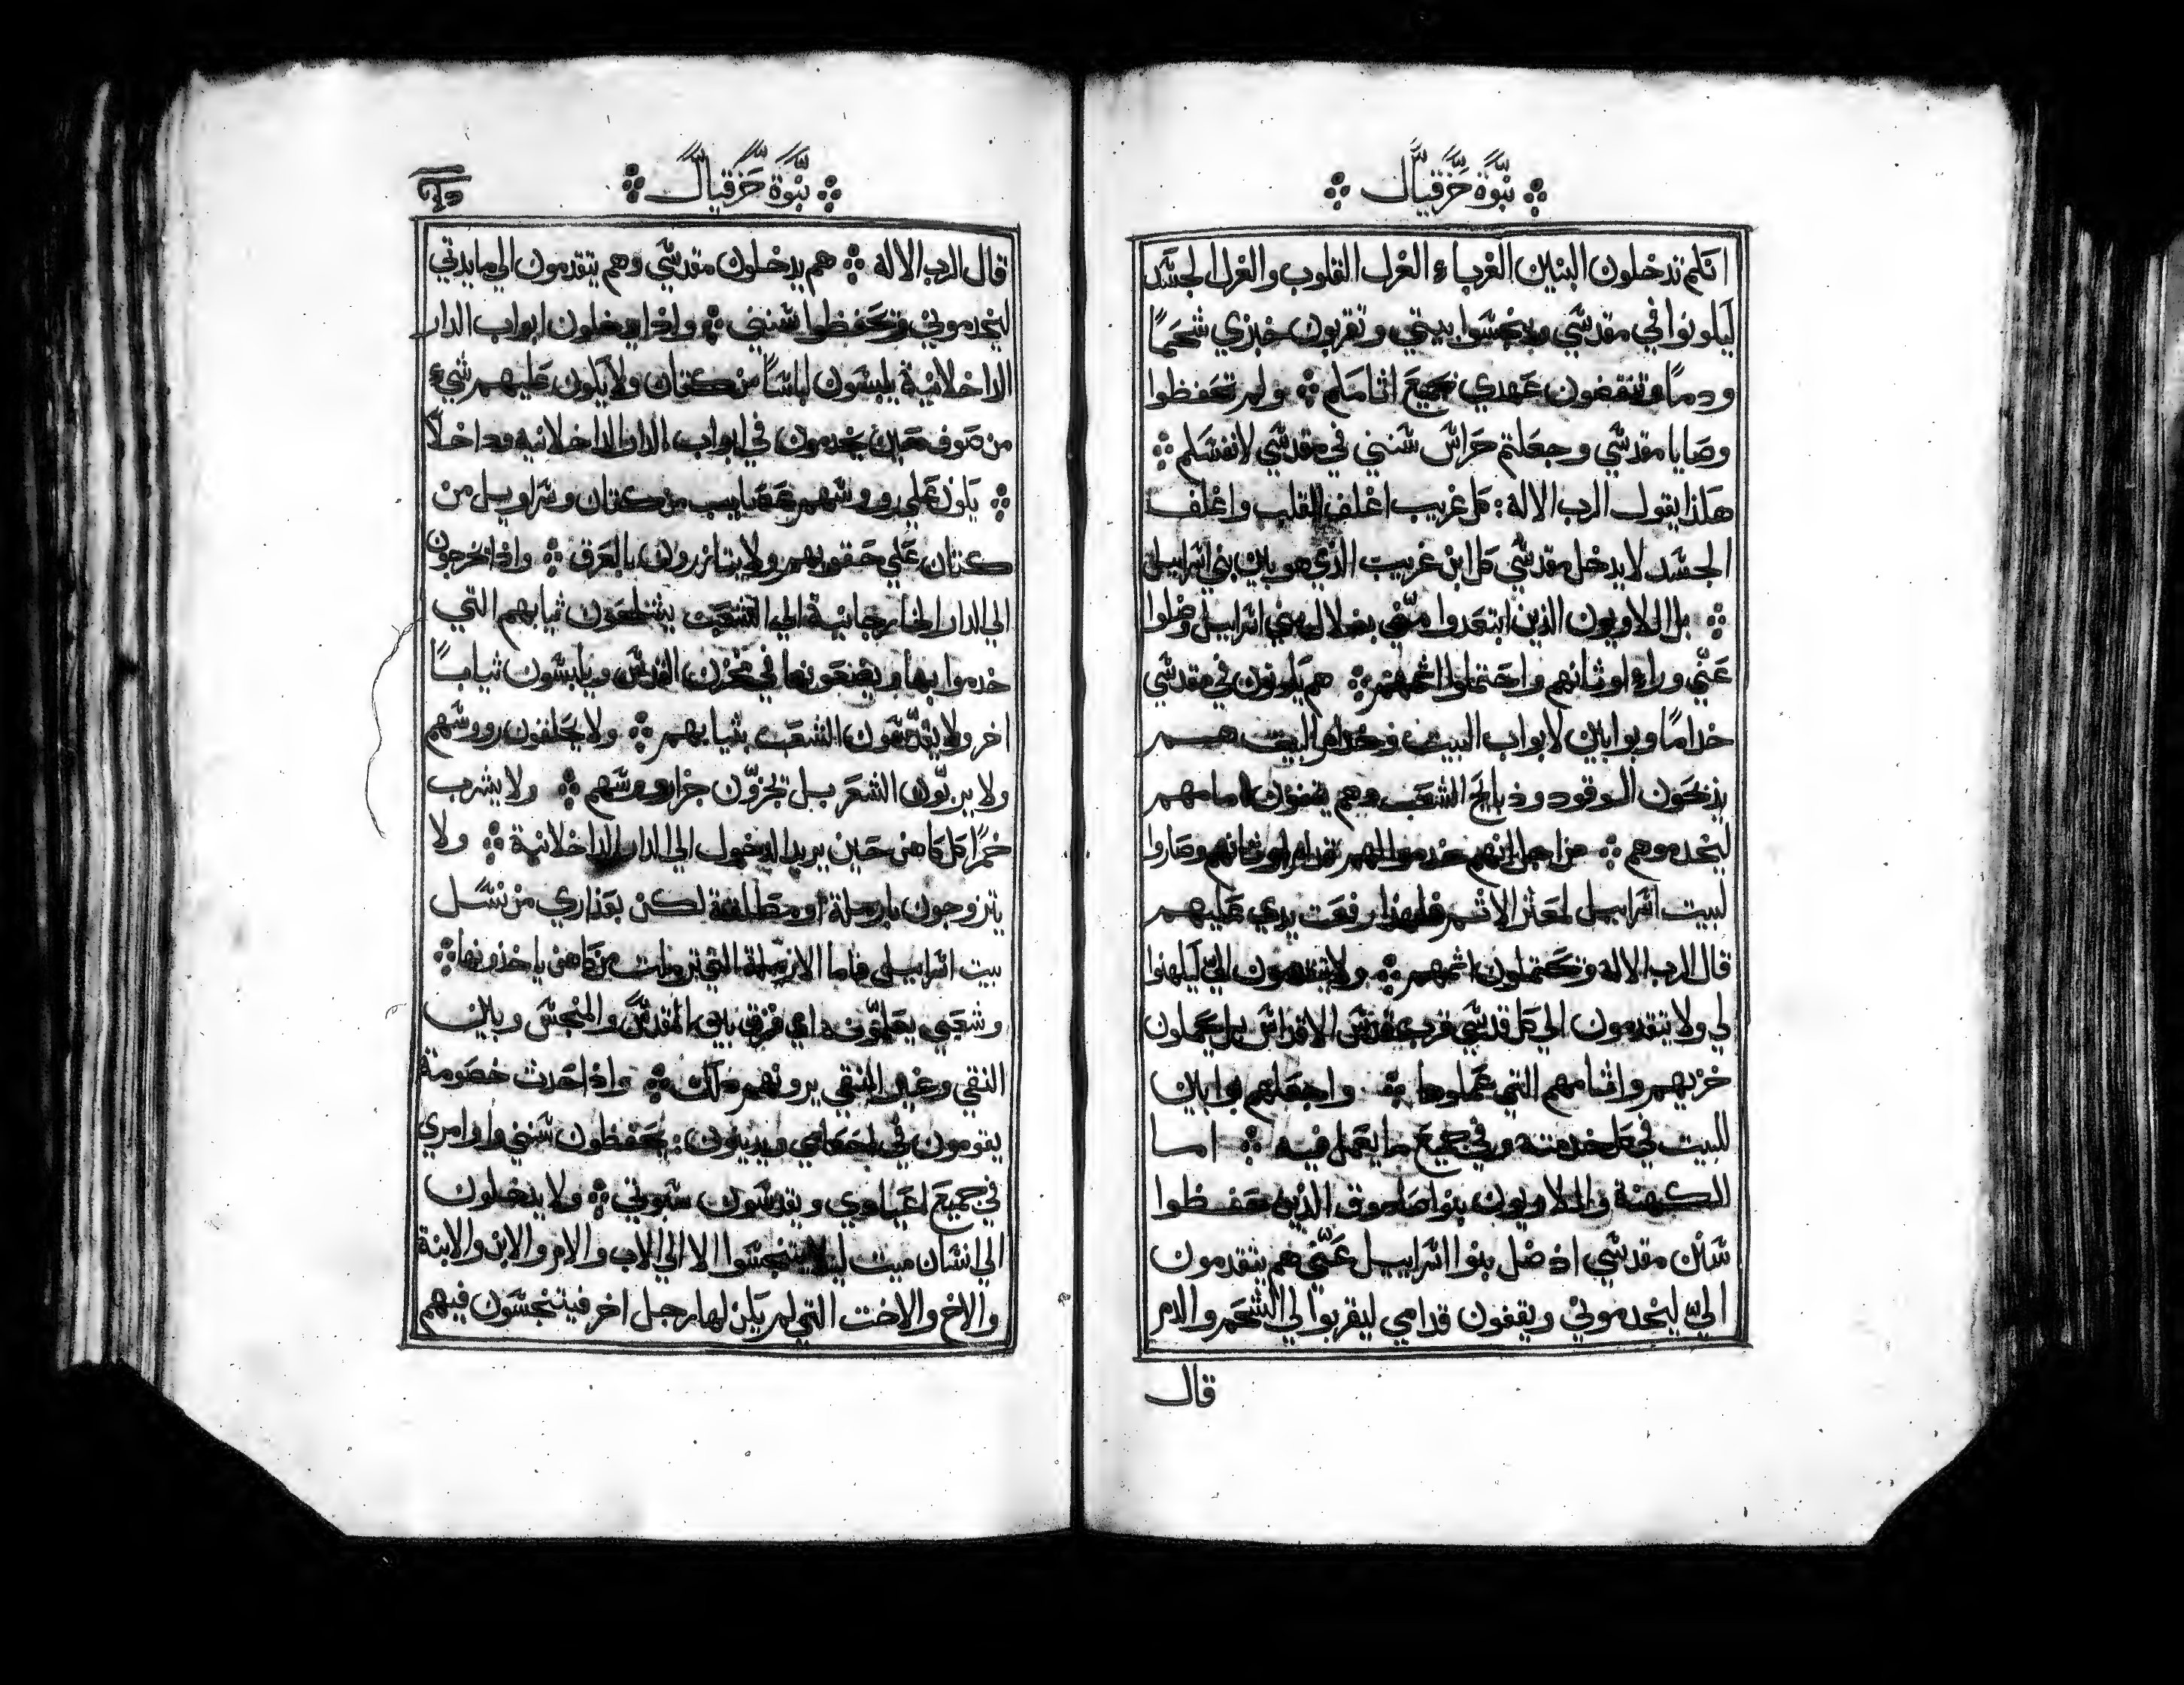 نبوة حزقيال
انكم تدخلون البنين الغرباء الغرل القلوب والغرل الجسد
ليكونوا في مقدسي وينجسوا بيتي وتقربون خبزي شحمًا
ودمًا وتنقضون عهدي بجميع اثامكم ولم تحفظوا
وصايا مقدسي وجعلتم حراس سنني في مقدسي لانفسكم
هكذا يقول الرب الاله كل غريب اغلف القلب واغلف
الجسد لا يدخل مقدسي كل ابن غريب الذي هو بين بني اسراييل
بل اللاويون الذين ابتعدوا مني بضلالة بني اسراييل وضلوا
عني وراء اوثانهم واحتملوا اثمهم هم يكونون في مقدسي
خدامًا وبوابين لابواب البيت وخدام البيت هم
يذبحون الوقود وذبايح الشعب وهم يقفون امامهم
ليخدموهم من اجل انهم خدموا لهم قدام اوثانهم وصاروا
لبيت اسراييل لعثر الاثم فلهذا رفعت يدي عليهم
قال الرب الاله وتحتملون اثمهم ولا يتقدمون الي ليكهنوا
لي ولا يتقدمون الي كل قدسي قرب قدس الاقداس بل يحملون
خزيهم واثامهم التي عملوها واجعلهم بوابين
للبيت في كل خدمته وفي جميع ما يعمل فيه اما
الكهنة واللاويون بنوا صادوق الذين حفظوا
سنن مقدسي اذ ضل بنوا اسراييل عني هم يتقدمون
الي ليخدموني ويقفون قدامي ليقربوا لي الشحم والدم
قال
نبوة حزقيال
قال الرب الاله هم يدخلون مقدسي وهم يتقدمون الي مايدتي
ليخدموني وتحفظوا سنني واذا يدخلون ابواب الدار
الداخلانية يلبسون لباسًا من كتان ولا يكون عليهم شيء
من صوف حين يخدمون في ابواب الدار الداخلانيه وداخلًا
يكون علي رووسهم عصايب من كتان وسراويل من
كتان علي حقويهم ولا يتازرون بالعرق واذا يخرجون
الي الدار الخارجانية الي الشعب يشلحون ثيابهم التي
خدموا بها ويضعونها في مخزن القدس ويلبسون ثيابًا
اخر ولا يقدسون الشعب بثيابهم ولا يحلقون رووسهم
ولا يربون الشعر بل تجزون جزا رووسهم ولا يشرب
خمرًا كل كاهن حين يريد الدخول الي الدار الداخلانية ولا
يتزوجون بارملة او مطلقة لكن بعذاري من نسل
بيت اسراييل فاما الارملة التي ترملت من كاهن ياخذونها
وشعبي يعلمون ما فرق بين المقدس والمنجس وبين
النقي وغير النقي يرونهم ذلك واذا حدث خصومة
يقومون في احكامي ويدينون يحفظون سنني واوامري
في جميع اعيادي ويقدسون سبوتي ولا يدخلون
الي انسان ميت ليلا يتنجسوا الا الي الاب والام والابن والابنة
والاخ والاخت التي لم يكن لها رجل اخر فيتنجسون فيهم